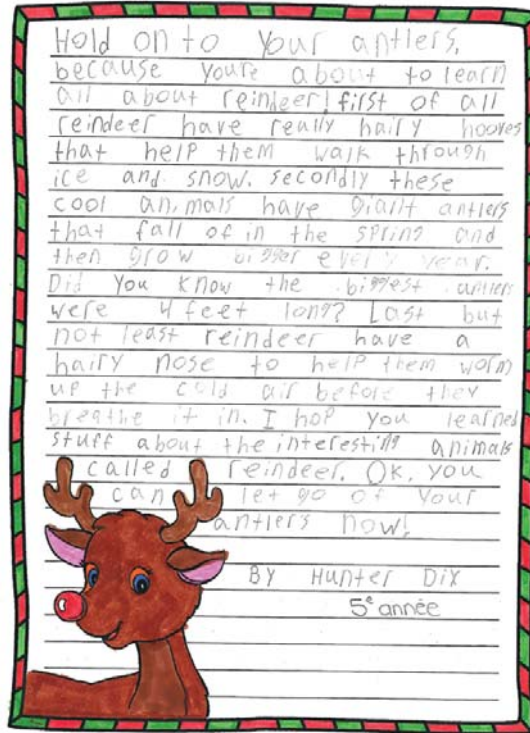 Hold on to Your antlers,
because youre about to learn
all about reindeer! first of all
reindeer have really hairy hooves
that help them walk through
ice and snow. secondly these
cool animals have giant antlers
that fall of in the spring and
then grow bigger every year.
Did You know the biggest antlers
were 4 feet long? Last but
not least reindeer have a
hairy nose to help them worm
up the cold air before they
breathe it in. I hop you learned
stuff about the interesting animals
called reindeer. Ok, you
can let go of Your
antlers now!
BY Hunter Dix
5e année